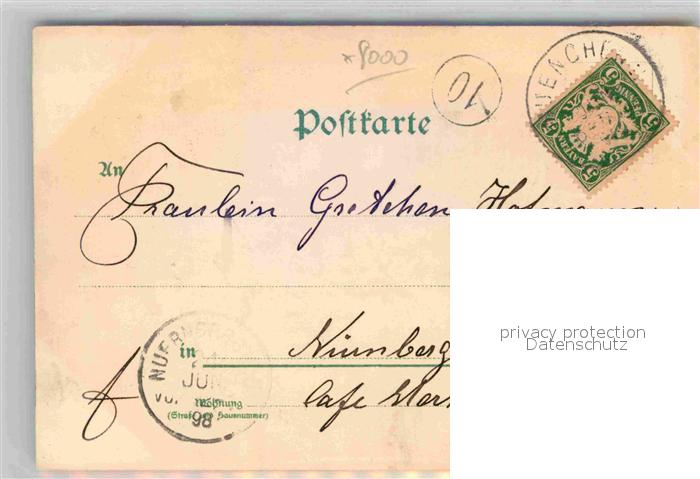 *8000
10
MUENCHEN
5 PFENNIG 5
5 BAYERN 5
Postkarte
An
Fräulein Gretchen
privacy protection
Datenschutz
NUERNBERG
JUN
98
in Nürnberg
Wohnung Cafe
(Straße und Hausnummer)